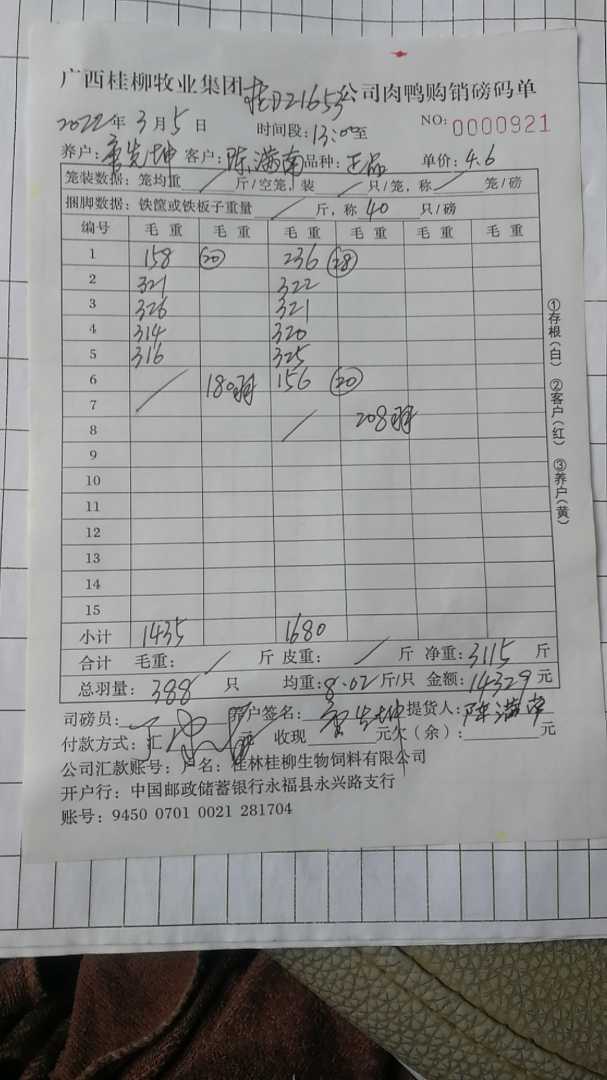 广西桂柳牧业集团桂D21653公司肉鸭购销磅码单
2022年3月5日 时间段:13:00至 NO: 0000921
养户: 客户:陈满南 品种:正品 单价:4.6
笼装数据: 笼均重 / 斤/空笼, 装 / 只/笼, 称 / 笼/磅
捆脚数据: 铁筐或铁板子重量 / 斤, 称 40 只/磅
编号 毛重 毛重 毛重 毛重 毛重 毛重
1 158 20 236 28
2 321 322
3 326 321
4 314 320
5 316 325
6 / 180羽 156 20
7
8 / 208羽
9
10
11
12
13
14
15
小计 1435 1680
合计 毛重: / 斤 皮重: / 斤 净重:3115 斤
总羽量: 388 只 均重:8.02斤/只 金额:14329元
司磅员: 养户签名: 提货人:陈满南
付款方式: 汇 元 收现 元欠(余): 元
公司汇款账号: 户名: 桂林桂柳生物饲料有限公司
开户行: 中国邮政储蓄银行永福县永兴路支行
账号: 9450 0701 0021 281704
①存根(白) ②客户(红) ③养户(黄)